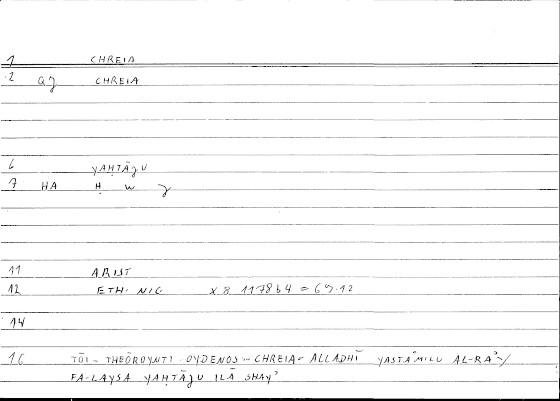 1 CHREIA
2 QJ CHREIA
6 YAḤTĀJU
7 HA Ḥ W J
11 ARIST
12 ETH. NIC X 8 1178b4
14
16 TŌI - THEŌROYNTI OYDENOS - CHREIA - ALLADHĪ YASTAʿMILU AL-RAʾY
FA-LAYSA YAḤTĀJU ILĀ SHAYʾ